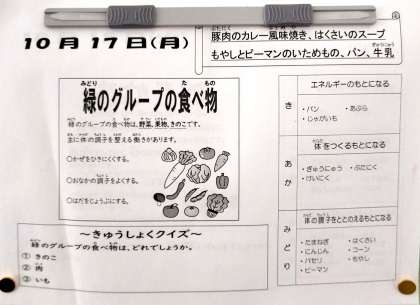 10月17日(月)
豚肉のカレー風味焼き、はくさいのスープ
もやしとピーマンのいためもの、パン、牛乳
緑のグループの食べ物
緑のグループの食べ物は、野菜、果物、きのこです。
主に体の調子を整える働きがあります。
○かぜをひきにくくする。
○おなかの調子をよくする。
○はだをじょうぶにする。
～きゅうしょくクイズ～
緑のグループの食べ物は、どれでしょうか。
① きのこ
② 肉
③ いも
き
エネルギーのもとになる
・パン ・あぶら
・じゃがいも
あか
体をつくるもとになる
・ぎゅうにゅう ・ぶたにく
・けいにく
みどり
体の調子をととのえるもとになる
・たまねぎ ・はくさい
・にんじん ・コーン
・パセリ ・もやし
・ピーマン